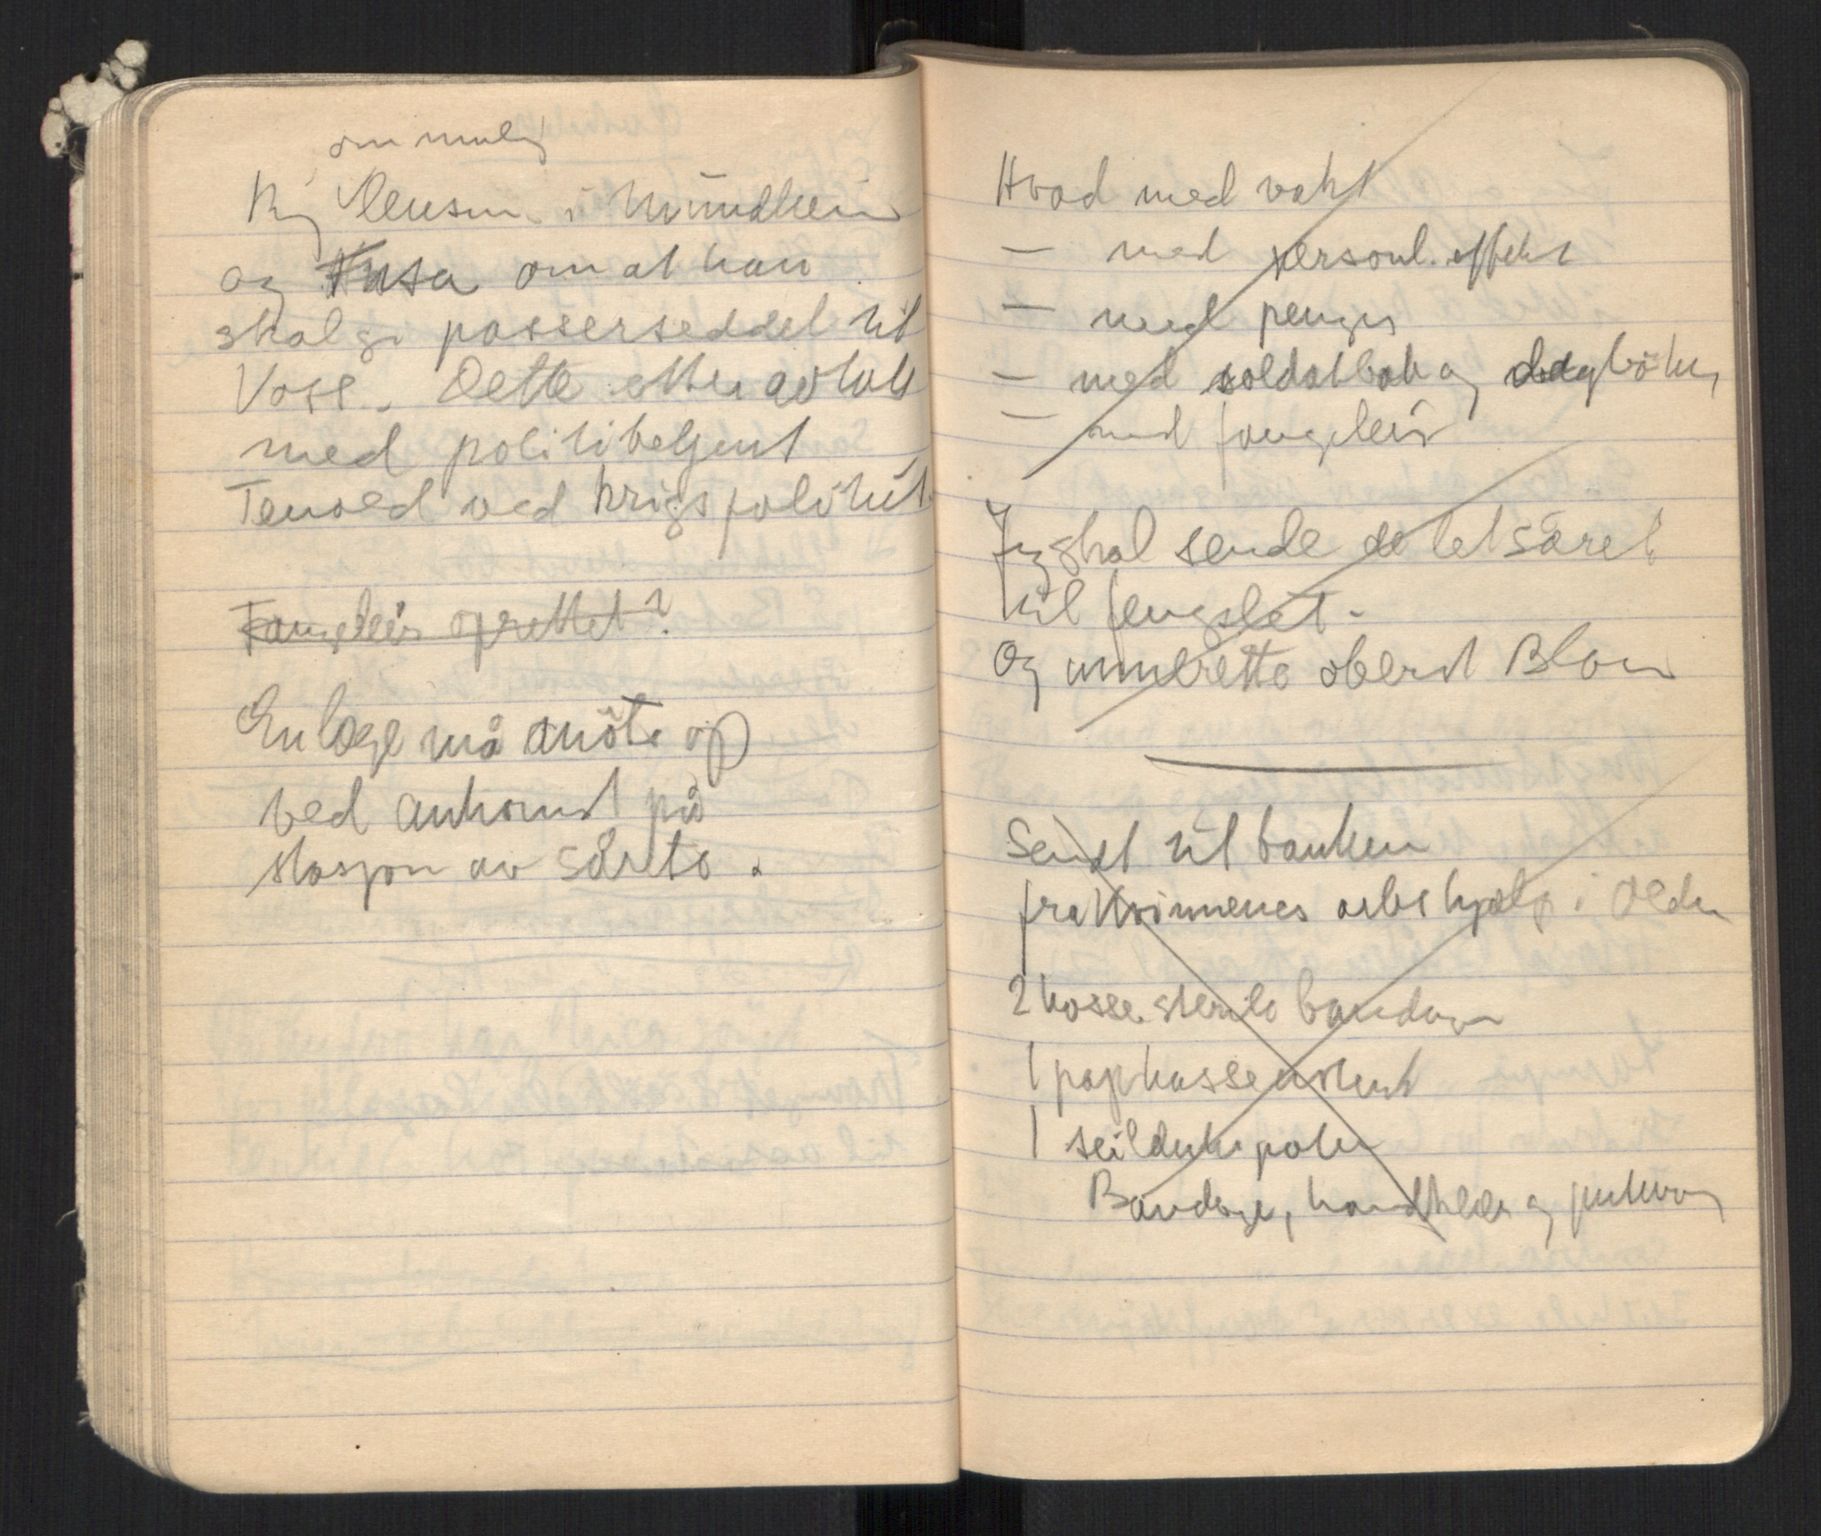 om mulig
Ring lensm. i Mundheim
og Fusa om at han
skal gi passerseddel til
Voss. Dette etter avtale
med politibetjent
Tenold ved krigspolitiet.
Fangeleir oprettet?
En læge må møte op
ved ankomst på
stasjon av sårete.
Hvad med vakt
— med personl. effekt
— med penger
— med soldatbok og dagbøker
— med fangeleir
Jeg skal sende de letsårete
til fengslet.
Og underrette oberst Blom
Sendt til banken
fra Kvinnenes arbshjelp i Ølen
2 kasse sterile bandager
1 papkasse
1 seilduks pakke
Bandager, handklær og putevar